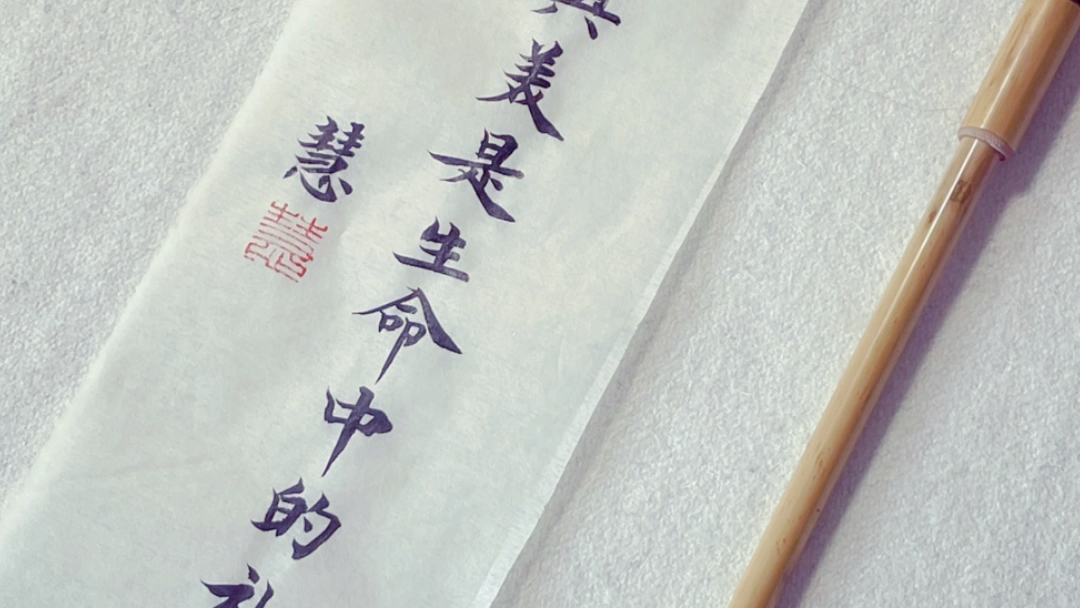 美是生命中的礼
慧
慧